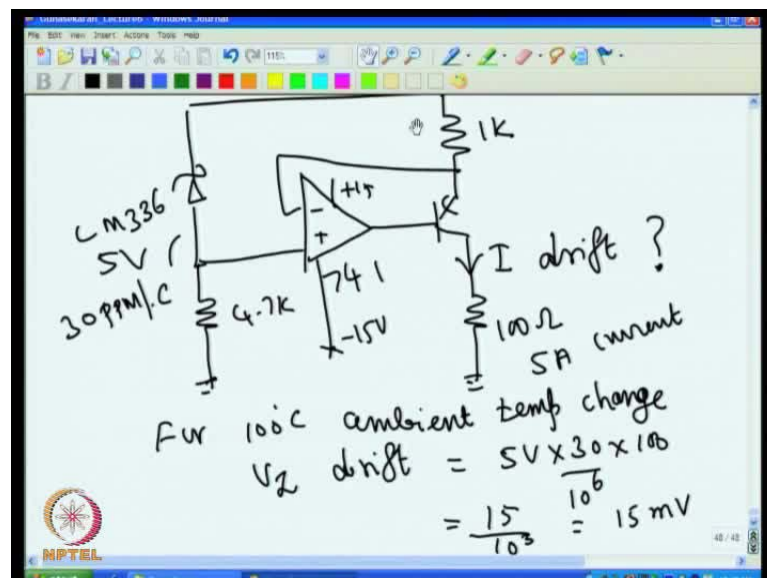 Gunasekaran_Lecture6 - Windows Journal
File Edit View Insert Actions Tools Help
115%
B I
1K
LM336
5V
30PPM/.C
+15
-
+
741
-15V
4.7K
I drift ?
100Ω
5A current
For 100°C ambient temp change
VZ drift = 5V × 30 × 100
10^6
= 15 = 15 mV
10^3
48 / 48
NPTEL